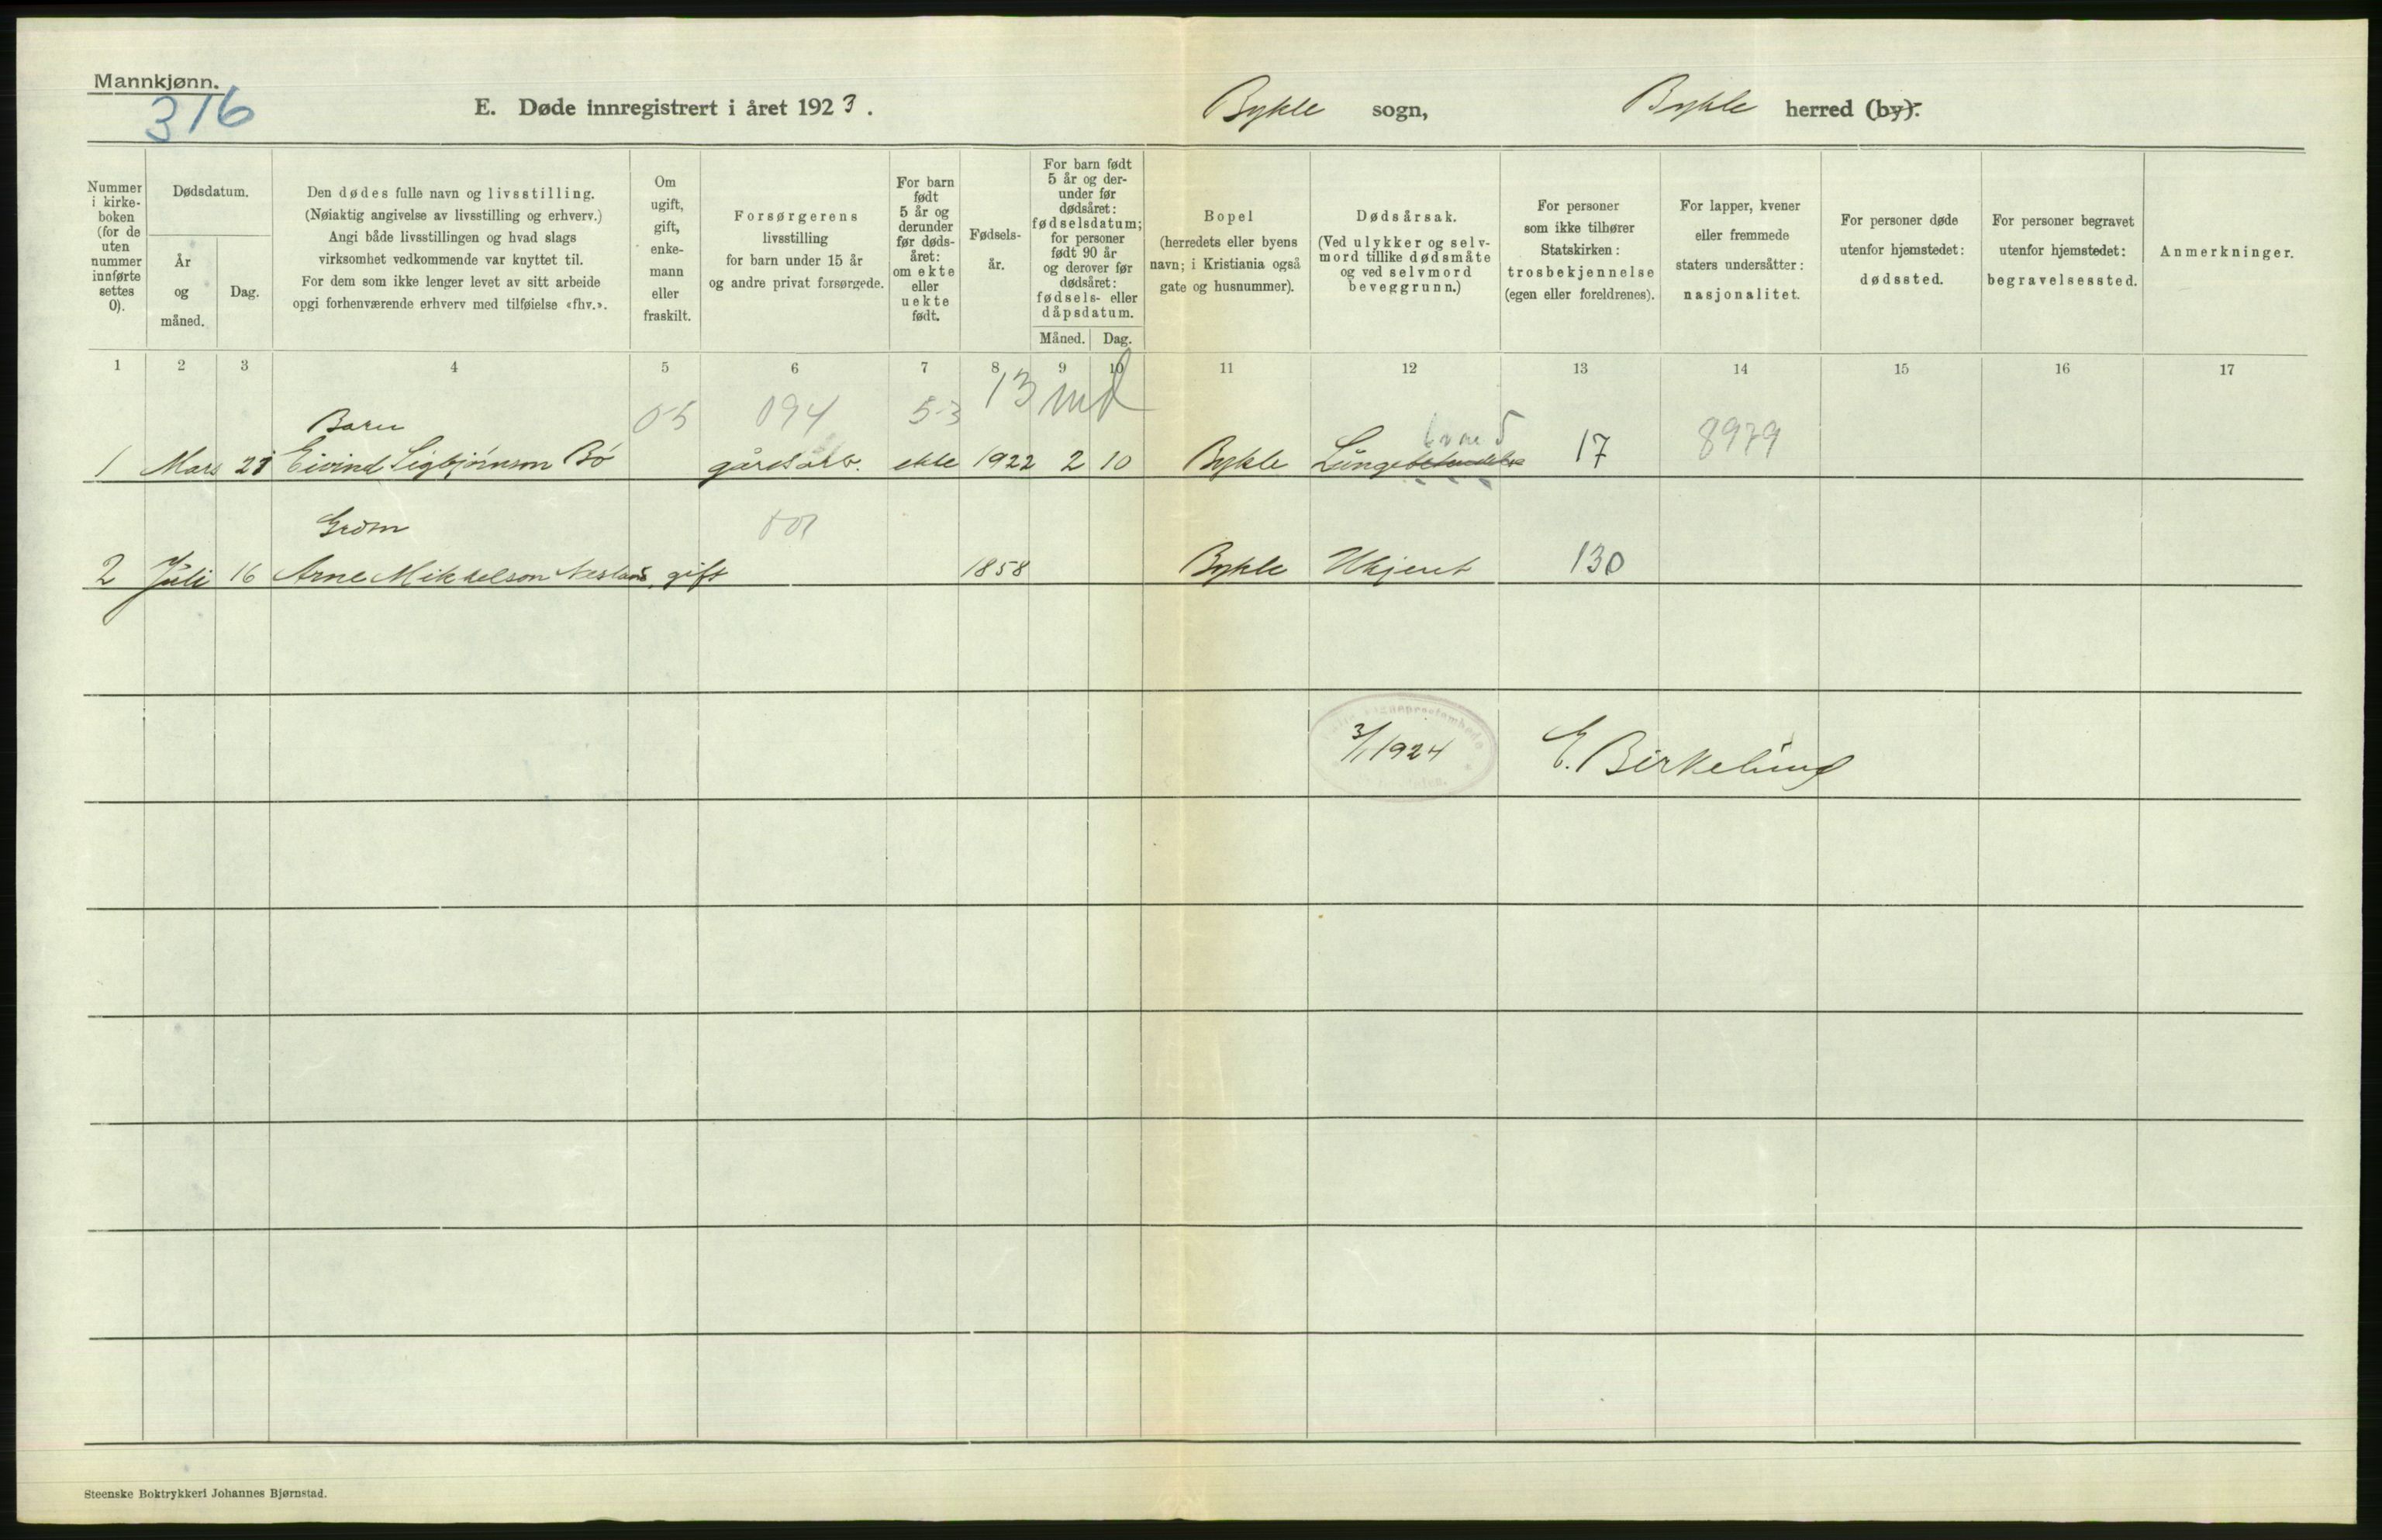 Mannkjønn.
316
E. Døde innregistrert i året 1923.
Bykle sogn,
Bykle herred (by).
Nummer i kirke- boken (for de uten nummer innførte settes 0).
Dødsdatum.
År og måned.
Dag.
Den dødes fulle navn og livsstilling.
(Nøiaktig angivelse av livsstilling og erhverv.)
Angi både livsstillingen og hvad slags
virksomhet vedkommende var knyttet til.
For dem som ikke lenger levet av sitt arbeide
opgi forhenværende erhverv med tilføielse «fhv.».
Om ugift, gift, enke- mann eller fraskilt.
Forsørgerens
livsstilling
for barn under 15 år
og andre privat forsørgede.
For barn født 5 år og derunder før døds- året: om ekte eller uekte født.
Fødsels- år.
For barn født 5 år og der- under før dødsåret: fødselsdatum; for personer født 90 år og derover før dødsåret: fødsels- eller dåpsdatum.
Måned. Dag.
Bopel
(herredets eller byens
navn; i Kristiania også
gate og husnummer).
Dødsårsak.
(Ved ulykker og selv-
mord tillike dødsmåte
og ved selvmord
beveggrunn.)
For personer
som ikke tilhører
Statskirken:
trosbekjennelse
(egen eller foreldrenes).
For lapper, kvener
eller fremmede
staters undersåtter:
nasjonalitet.
For personer døde
utenfor hjemstedet:
dødssted.
For personer begravet
utenfor hjemstedet:
begravelsessted.
Anmerkninger.
1 2 3 4 5 6 7 8 9 10 11 12 13 14 15 16 17
13 md
Barn 05 094 53
1 Mars 21 Eivind Sigbjørnson Bø gårdsarb. ekte 1922 2 10 Bykle 17 8979
001
2 Juli 16 Arne Mikkelson Nesland gift 1858 Bykle Ukjent 130
3/1 1924 E. Birkelund
Steenske Boktrykkeri Johannes Bjørnstad.